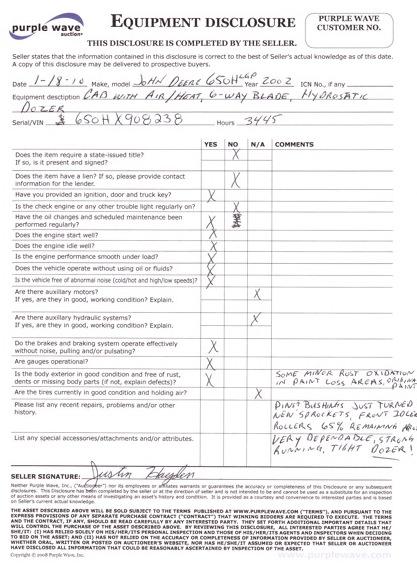 purple wave
auction
EQUIPMENT DISCLOSURE
PURPLE WAVE
CUSTOMER NO.
THIS DISCLOSURE IS COMPLETED BY THE SELLER.
Seller states that the information contained in this disclosure is correct to the best of Seller's actual knowledge as of this date.
A copy of this disclosure may be delivered to prospective buyers.
Date 1-18-10 Make, model JOHN DEERE 650H LGP Year 2002 ICN No., if any
Equipment desciption CAB WITH AIR/HEAT, 6-WAY BLADE, HYDROSATIC
DOZER
Serial/VIN 650HX908238 Hours 3445
YES NO N/A COMMENTS
Does the item require a state-issued title? X
If so, is it present and signed?
Does the item have a lien? If so, please provide contact X
information for the lender.
Have you provided an ignition, door and truck key? X
Is the check engine or any other trouble light regularly on? X
Have the oil changes and scheduled maintenance been X
performed regularly?
Does the engine start well? X
Does the engine idle well? X
Is the engine performance smooth under load? X
Does the vehicle operate without using oil or fluids? X
Is the vehicle free of abnormal noise (cold/hot and high/low speeds)? X
Are there auxiliary motors? X
If yes, are they in good, working condition? Explain.
Are there auxiliary hydraulic systems? X
If yes, are they in good, working condition? Explain.
Do the brakes and braking system operate effectively X
without noise, pulling and/or pulsating?
Are gauges operational? X
Is the body exterior in good condition and free of rust, X SOME MINOR RUST OXIDATION
dents or missing body parts (if not, explain defects)? IN PAINT LOSS AREAS, ORIGINAL PAINT
Are the tires currently in good condition and holding air? X
Please list any recent repairs, problems and/or other PINS & BUSHINGS JUST TURNED
history. NEW SPROCKETS, FRONT IDLER
ROLLERS 65% REMAINING
List any special accessories/attachments and/or attributes. VERY DEPENDABLE, STRONG
RUNNING, TIGHT DOZER!
SELLER SIGNATURE: Justin
Neither Purple Wave, Inc., ("Auctioneer") nor its employees or affiliates warrants or guarantees the accuracy or completeness of this Disclosure or any subsequent
disclosures. This Disclosure has been completed by the seller or at the direction of seller and is not intended to be and cannot be used as a substitute for an inspection
of auction assets or any other means of investigating an asset's history and/or condition. It is provided as a courtesy and convenience to interested parties and is based
on Seller's actual current knowledge.
THE ASSET DESCRIBED ABOVE WILL BE SOLD SUBJECT TO THE TERMS PUBLISHED AT WWW.PURPLEWAVE.COM ("TERMS"), AND PURSUANT TO THE
EXPRESS PROVISIONS OF ANY SEPARATE PURCHASE CONTRACT ("CONTRACT") THAT WINNING BIDDERS ARE REQUIRED TO EXECUTE. THE TERMS
AND THE CONTRACT, IF ANY, SHOULD BE READ CAREFULLY BY ANY INTERESTED PARTY. THEY SET FORTH ADDITIONAL IMPORTANT DETAILS THAT
WILL CONTROL THE PURCHASE OF THE ASSET DESCRIBED ABOVE. BY REVIEWING THIS DISCLOSURE, ALL INTERESTED PARTIES AGREE THAT HE/
SHE/IT: (I) HAS RELIED SOLELY ON HIS/HER/ITS PERSONAL INSPECTION AND THOSE OF HIS/HER/ITS AGENTS AND INSPECTORS WHEN DECIDING
TO BID ON THE ASSET; AND (II) HAS NOT RELIED ON THE ACCURACY OR COMPLETENESS OF INFORMATION PROVIDED BY SELLER OR AUCTIONEER,
WHETHER ORAL, WRITTEN OR POSTED ON AUCTIONEER'S WEBSITE, NOR HAS HE/SHE/IT ASSUMED OR EXPECTED THAT SELLER OR AUCTIONEER
HAVE DISCLOSED ALL INFORMATION THAT COULD BE REASONABLY ASCERTAINED BY INSPECTION OF THE ASSET.
Copyright © 2008 Purple Wave, Inc.
www.purplewave.com